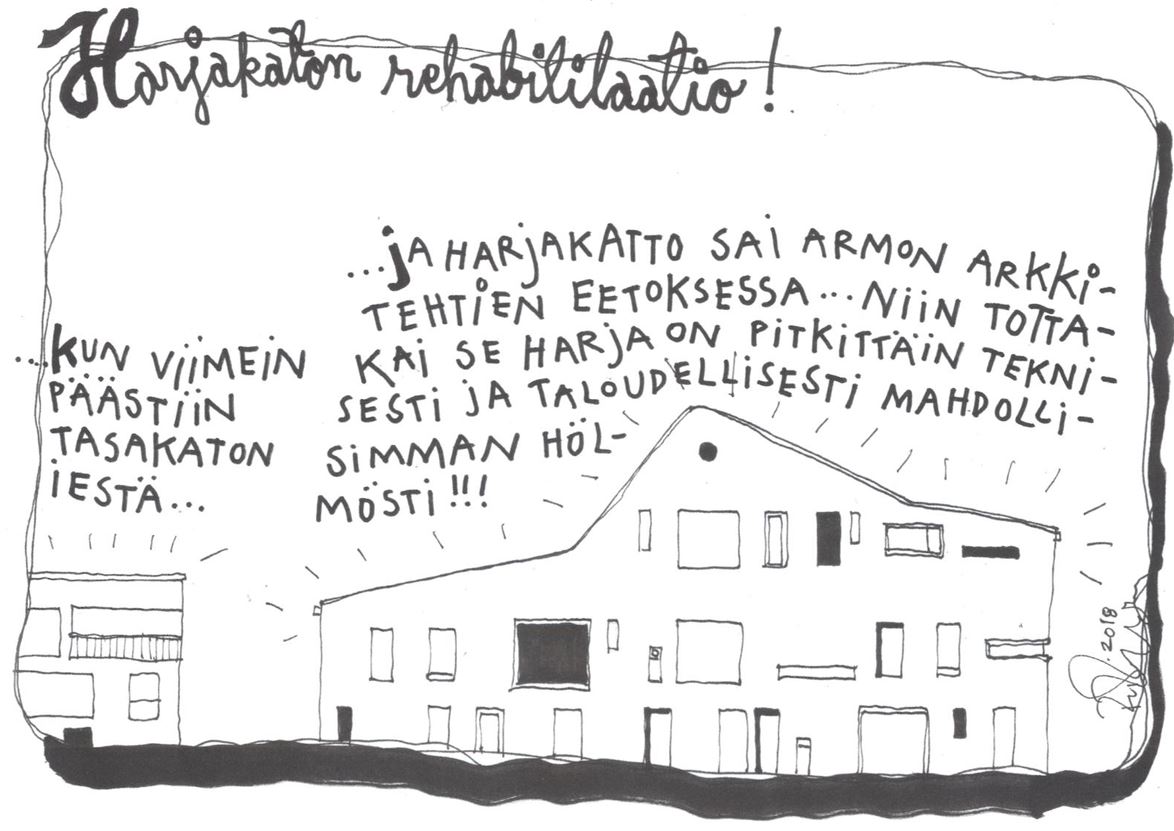 Harjakaton rehabilitaatio!
...KUN VIIMEIN
PÄÄSTIIN
TASAKATON
IESTÄ...
...JA HARJAKATTO SAI ARMON ARKKI-
TEHTIEN EETOKSESSA...NIIN TOTTA-
KAI SE HARJA ON PITKITTÄIN TEKNI-
SESTI JA TALOUDELLISESTI MAHDOLLI-
SIMMAN HÖL-
MÖSTI!!!
2018